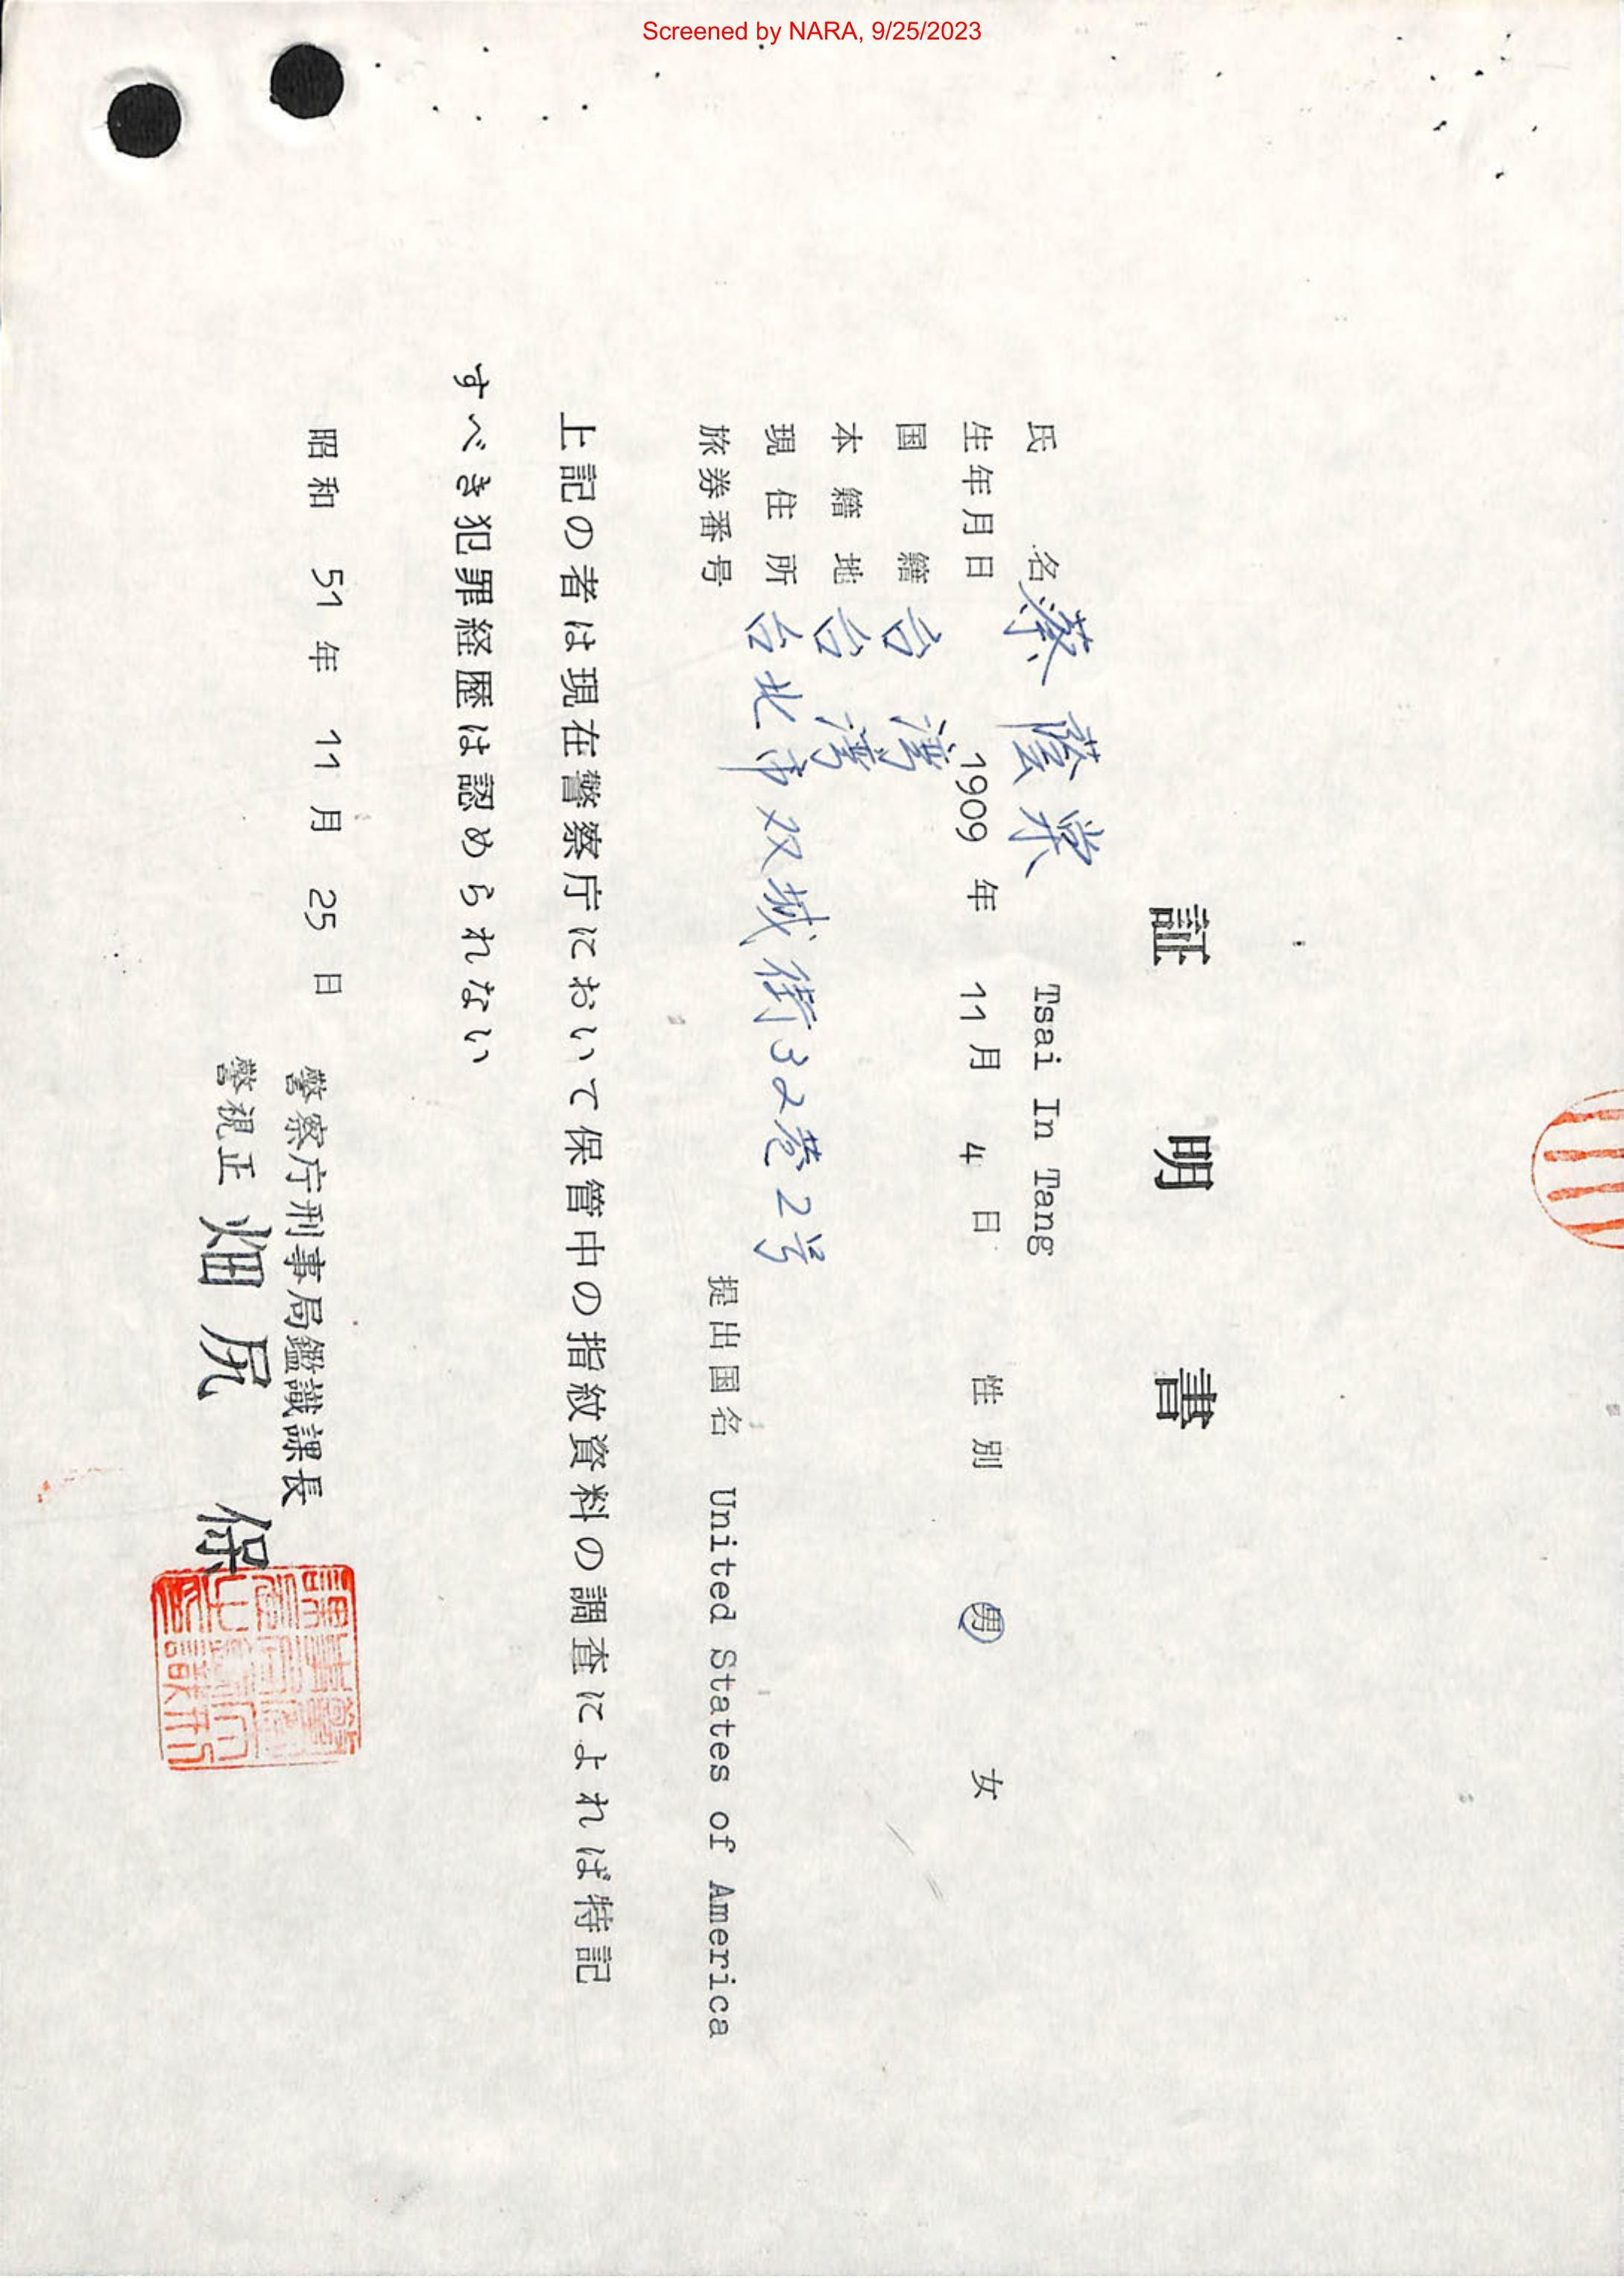 Screened by NARA, 9/25/2023
証明書
氏名 蔡蔭棠 Tsai In Tang
生年月日 1909年 11月 4日 性別 男 女
国籍 台湾
本籍地 台湾
現住所 台北市双城街32巷2号
旅券番号 提出国名 United States of America
上記の者は現在警察庁において保管中の指紋資料の調査によれば特記
すべき犯罪経歴は認められない
昭和 51年 11月 25日
警察庁刑事局鑑識課長
警視正 畑尻 保